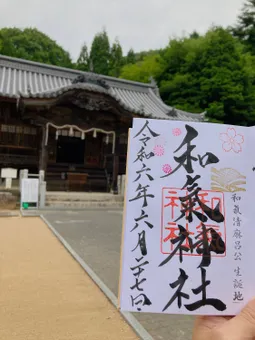 和氣清麻呂公 生誕地
和氣神社
令和六年六月二十七日